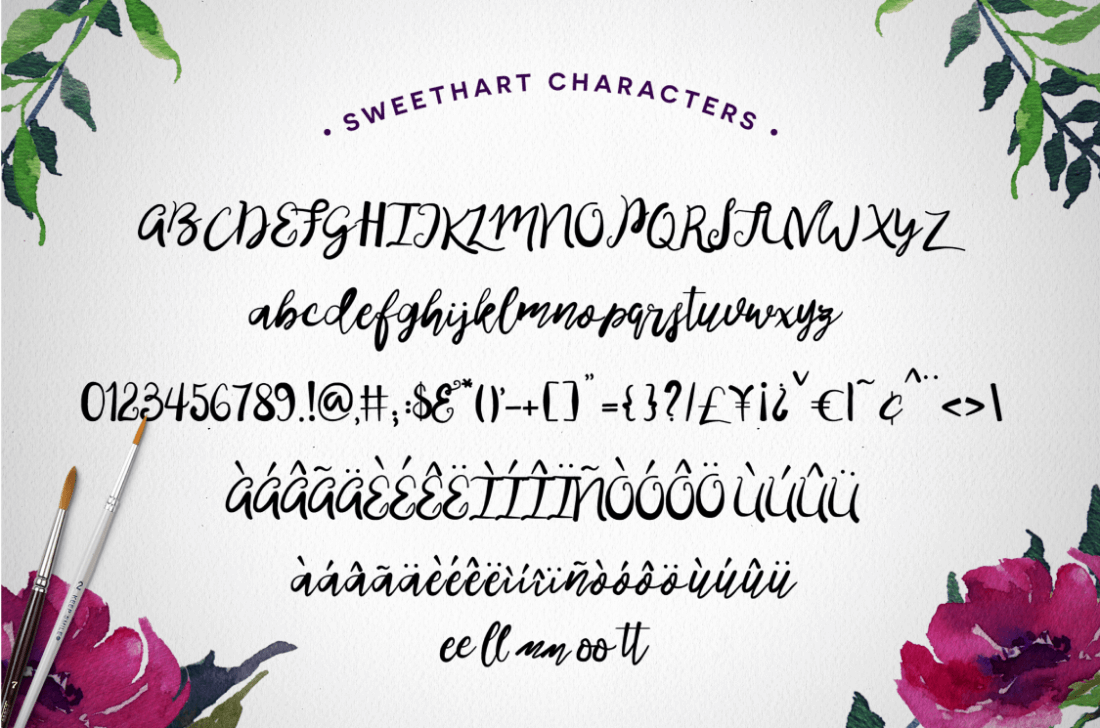 • SWEETHART CHARACTERS •
ABCDEFGHIJKLMNOPQRSTUVWXYZ
abcdefghijklmnopqrstuvwxyz
0123456789.!@,#;:$&*()'-+[]"={}?/£¥¡¿ˇ€|~¢^¨<>\
ÀÁÂÃÄÈÉÊËÌÍÎÏÑÒÓÔÖÙÚÛÜ
àáâãäèéêëìíîïñòóôöùúûü
ee ll mm oo tt